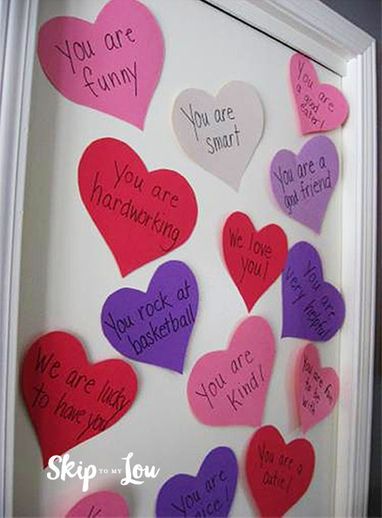 You are
funny
You are
smart
You are
a good
eater!
You are
hardworking
You are a
good friend
We love
you!
You are
very helpful
You rock at
basketball
We are lucky
to have you!
You are
Kind!
You are fun
to be
with
You are a
cutie!
You are
nice!
Skip TO MY Lou